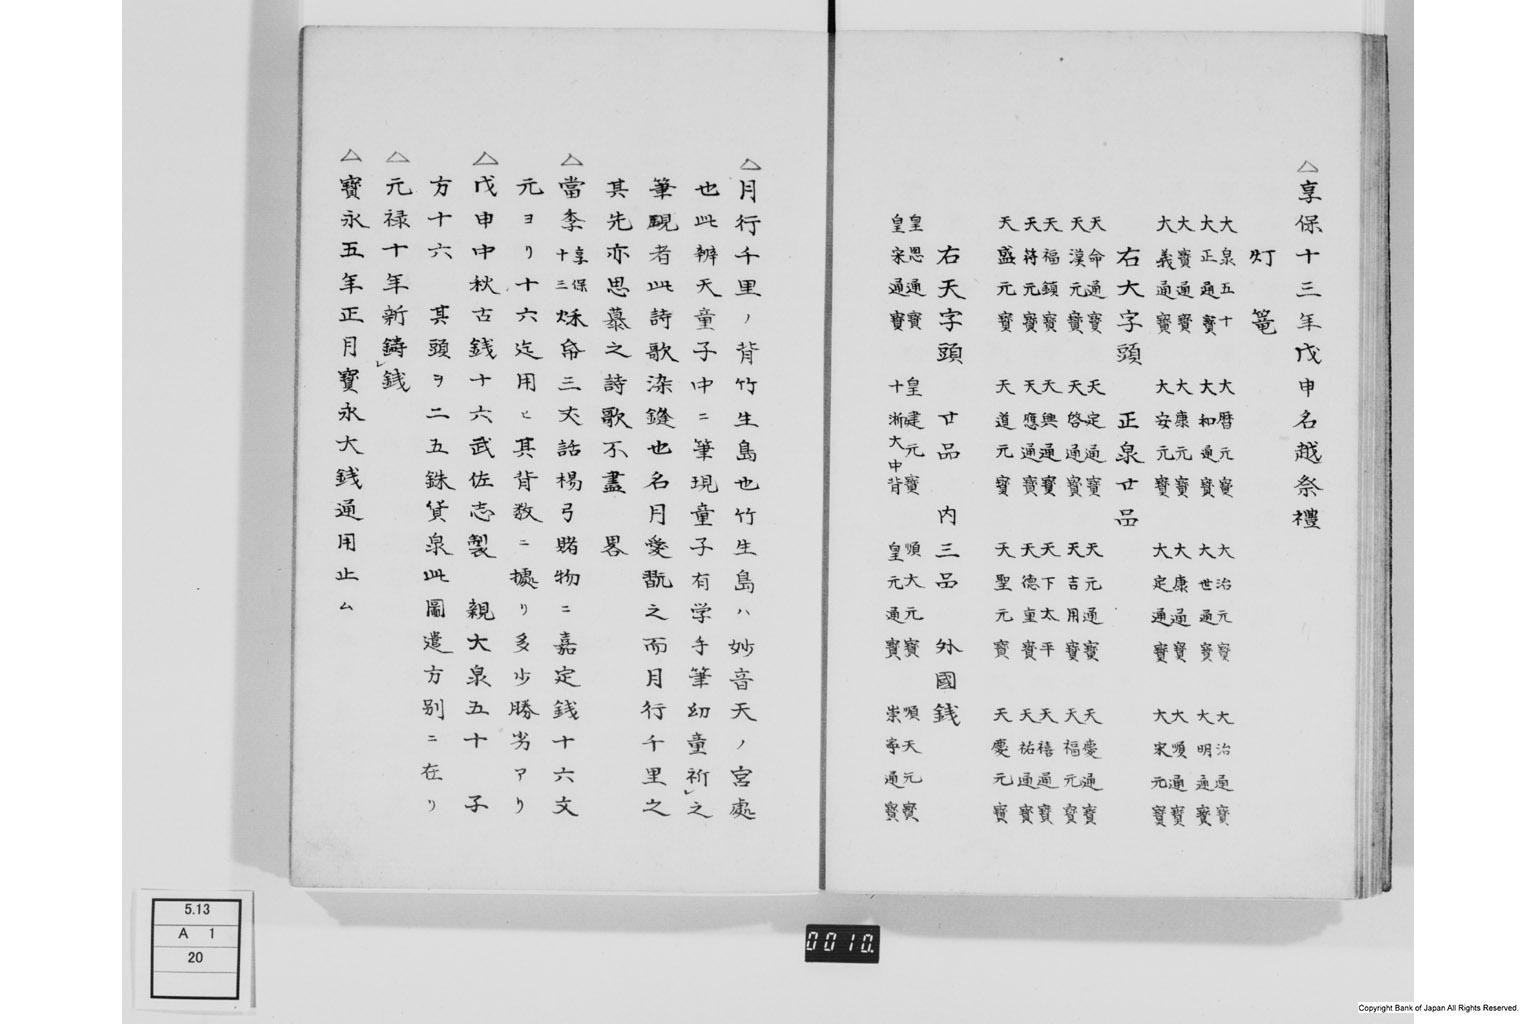 △享保十三年戊申名越祭禮
灯篭
大泉五十 大暦元寳 大治元寳 大治通寳
大正通寳 大和通寳 大世通寳 大明通寳
大寳通寳 大康元寳 大康通寳 大順通寳
大義通寳 大安元寳 大定通寳 大宋元寳
右大字頭 正泉廿品
天命通寳 天定通寳 天元通寳 天慶通寳
天漢元寳 天啓通寳 天吉用寳 天福元寳
天福鎮寳 天興通寳 天下太平 天禧通寳
天符元寳 天應通寳 天德重寳 天祐通寳
天盛元寳 天道元寳 天聖元寳 天慶元寳
右天字頭 廿品 内三品 外國銭
皇恩通寳 皇建元寳 順大元寳 順天元寳
皇宋通寳 十淅大中背 皇元通寳 崇寧通寳
△月行千里ノ背竹生島也竹生島ハ妙音天ノ宮處
也此辨天童子中ニ筆現童子有学手筆幼童祈之
筆硯者此詩歌染縫也名月愛翫之而月行千里之
其先亦思慕之詩歌不盡 畧
△當季享保十三烁帋三丈話楊弓賭物ニ嘉定銭十六文
元ヨリ十六迠用ヒ其背数ニ據り多少勝劣アり
△戊申中秋古銭十六武佐志製 親大泉五十 子
方十六 其頭ヲ二五銖貨泉此圖遣方别ニ在り
△元禄十年新鑄銭
△寳永五年正月寳永大銭通用止ム
5.13
A 1
20
0010.
Copyright Bank of Japan All Rights Reserved.